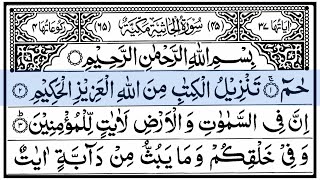 اٰیَاتُهَا ٣٧ (٤٥) سُوْرَةُ الْجَاثِيَةِ مَكِّيَّةٌ (٦٥) رُكُوْعَاتُهَا ٤
بِسْمِ اللهِ الرَّحْمٰنِ الرَّحِيْمِ
حٰمٓ ۝١ تَنْزِيْلُ الْكِتٰبِ مِنَ اللهِ الْعَزِيْزِ الْحَكِيْمِ ۝٢
اِنَّ فِى السَّمٰوٰتِ وَالْاَرْضِ لَاٰيٰتٍ لِّلْمُؤْمِنِيْنَ ۝٣
وَفِىْ خَلْقِكُمْ وَمَا يَبُثُّ مِنْ دَآبَّةٍ اٰيٰتٌ